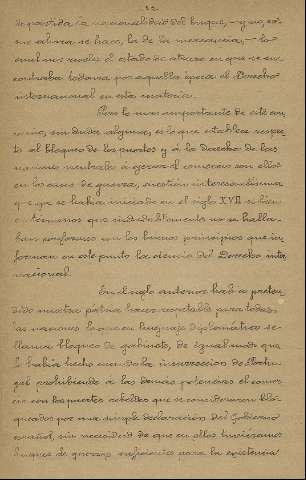 de partida la nacionalidad del buque, - y no, co-
mo ahora se hace, la de la mercancía, - lo
cual nos revela el estado de atraso en que se en-
contraba todavía por aquella época el Derecho
internacional en esta materia.
Pero lo mas importante de este con-
venio, sin duda alguna, es lo que establece respec-
to al bloqueo de los puertos y á los Derechos de las
naciones neutrales á ejercer el comercio con ellos
en los casos de guerra, cuestión interesantísima
que ya se había iniciado en el siglo XVII si bien
en términos que indudablemente no se halla-
ban conformes con los buenos principios que in-
forman en este punto la ciencia del Derecho inter-
nacional.
En el siglo anterior había preten-
dido nuestra patria hacer respetable para todas
las naciones lo que en lenguaje diplomático se
llama bloqueo de gabinete, de igual modo que
lo había hecho cuando la insurrección de Portu-
gal prohibiendo á las demas potencias el comer-
cio con los puertos rebeldes que se consideraron blo-
queados por una simple declaración del Gobierno
español, sin necesidad de que en ellos tuviésemos
buques de guerra suficientes para la existencia